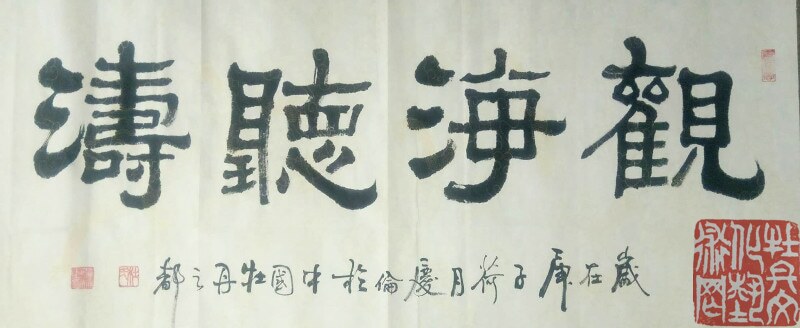 觀海聽濤
歲在庚子荷月慶倫於中國牡丹之都